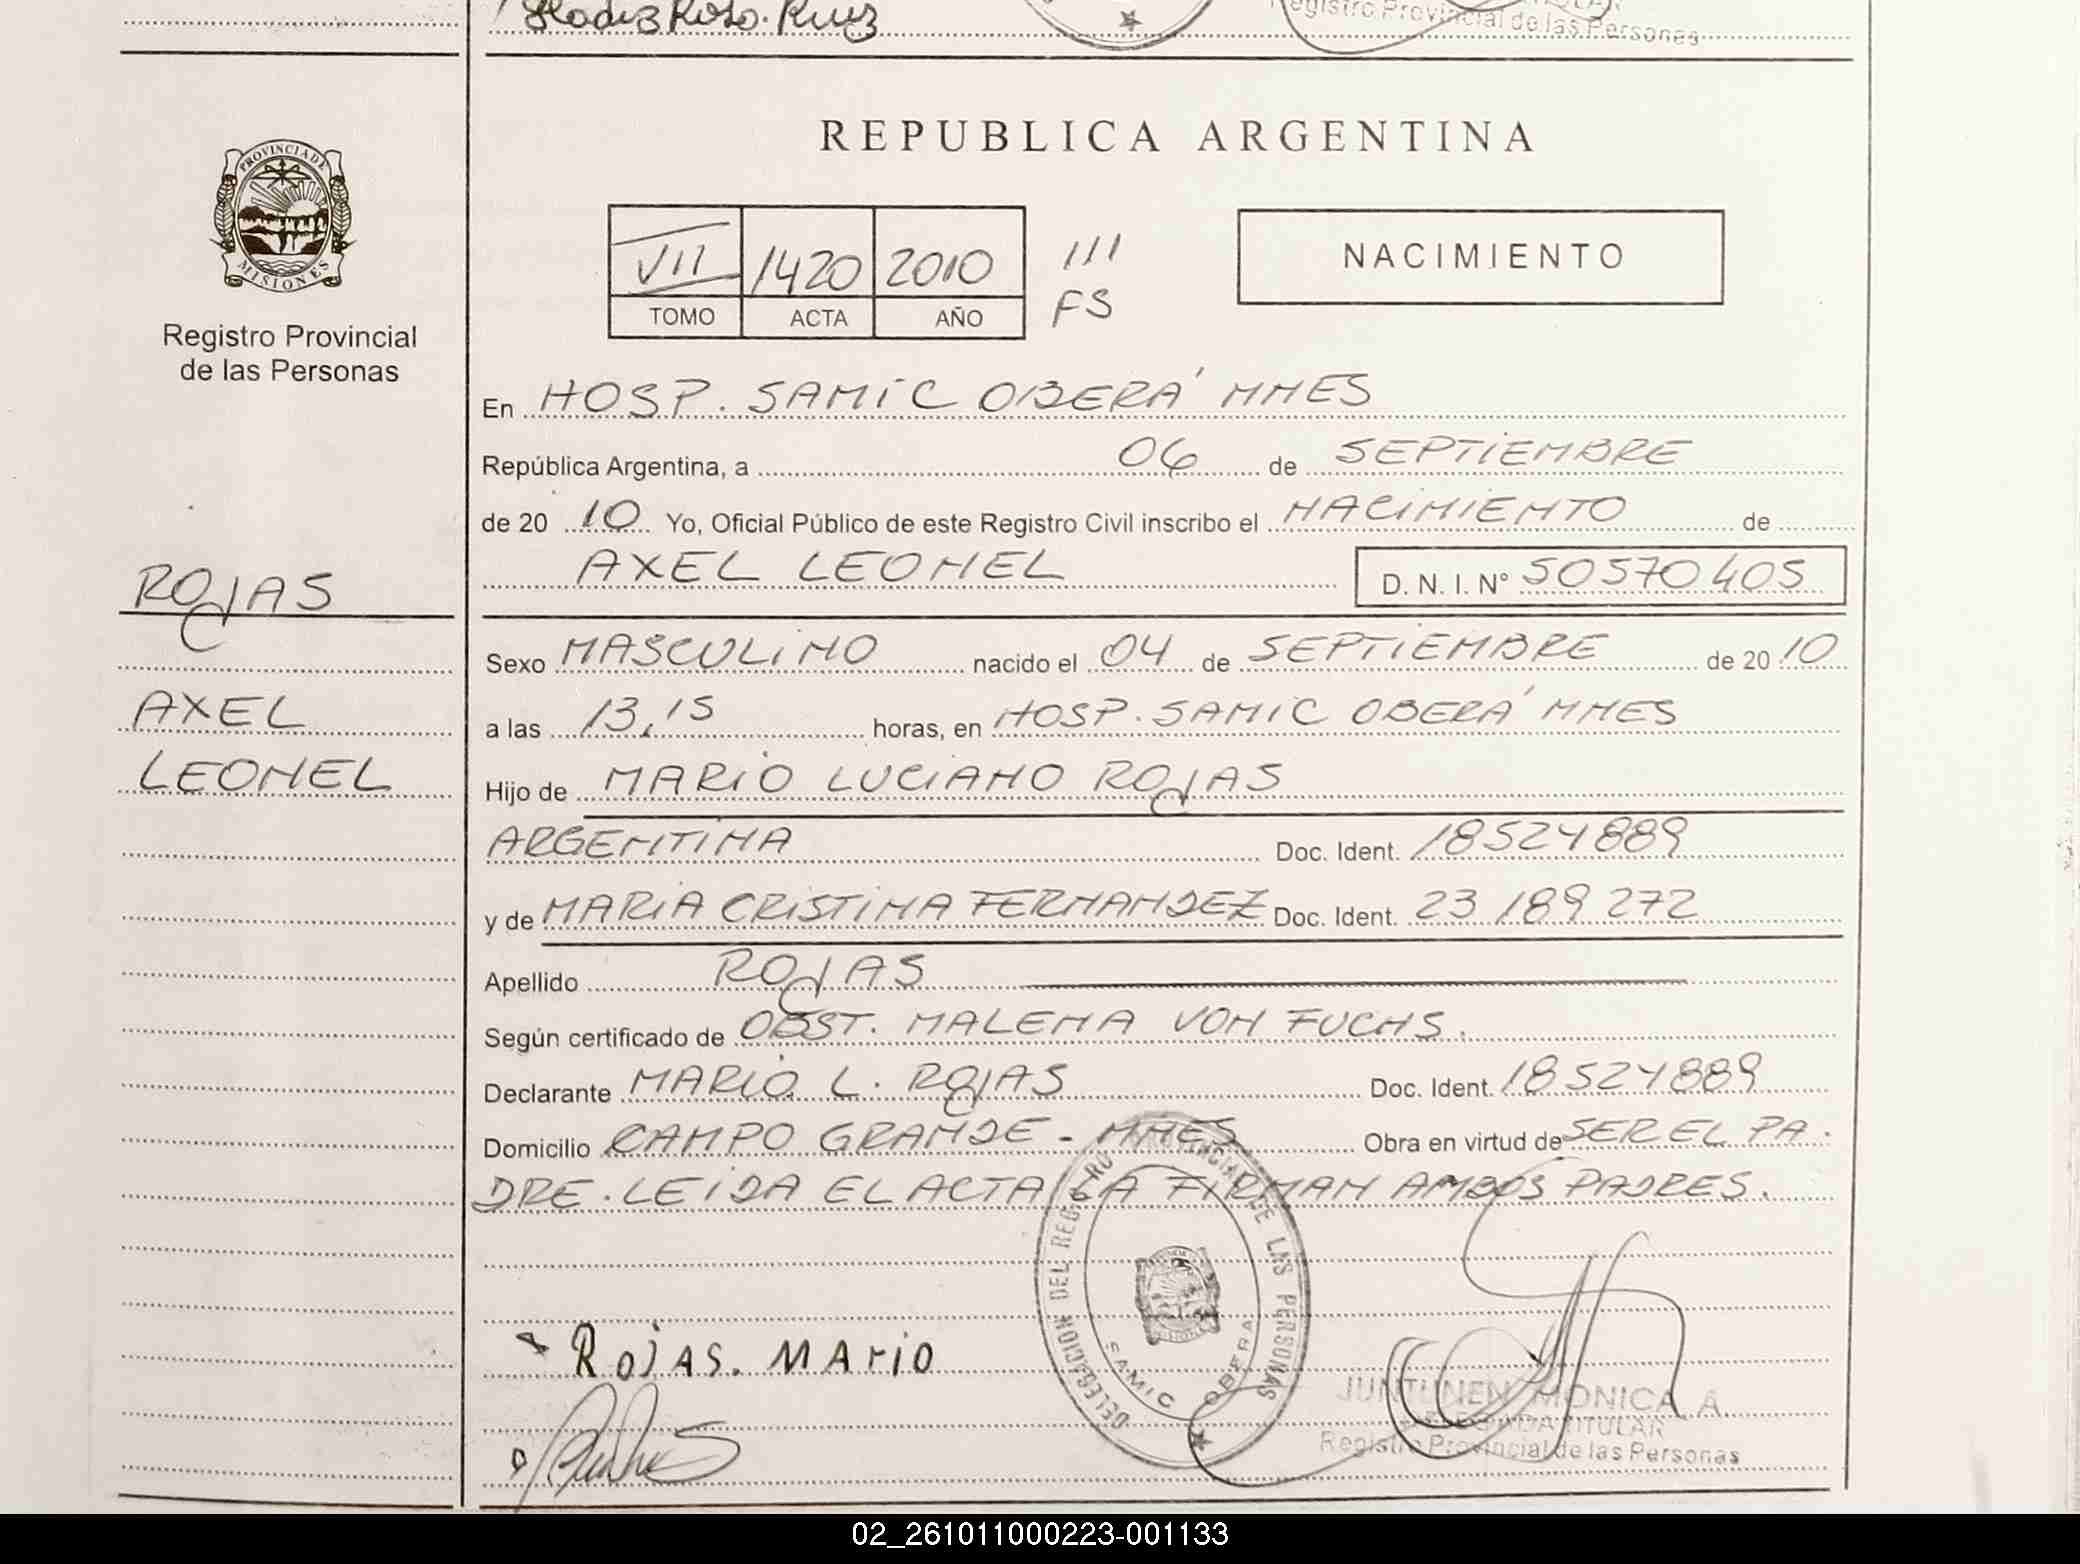 Gladiz Rosa. Ruiz
Registro Provincial de las Personas
REPUBLICA ARGENTINA
PROVINCIA DE
MISIONES
Registro Provincial
de las Personas
VII 1420 2010 111
TOMO ACTA AÑO FS
NACIMIENTO
En HOSP. SAMIC OBERÁ MNES
República Argentina, a 06 de SEPTIEMBRE
de 20 10 Yo, Oficial Público de este Registro Civil inscribo el NACIMIENTO de
AXEL LEONEL D. N. I. N° 50570405
ROJAS
AXEL
LEONEL
Sexo MASCULINO nacido el 04 de SEPTIEMBRE de 20 10
a las 13,15 horas, en HOSP. SAMIC OBERÁ MNES
Hijo de MARIO LUCIANO ROJAS
ARGENTINA Doc. Ident. 18524889
y de MARIA CRISTINA FERNANDEZ Doc. Ident. 23 189 272
Apellido ROJAS
Según certificado de OBST. MALENA VON FUCHS.
Declarante MARIO L. ROJAS Doc. Ident. 18524889
Domicilio CAMPO GRANDE - MNES Obra en virtud de SER EL PA.
DRE. LEIDA EL ACTA LA FIRMAN AMBOS PADRES.
DELEGACION DEL REGISTRO PROVINCIAL DE LAS PERSONAS
SAMIC OBERA
Rojas. MArio
JUNTUNEN MONICA A
DELEGADA TITULAR
Registro Provincial de las Personas
02_261011000223-001133